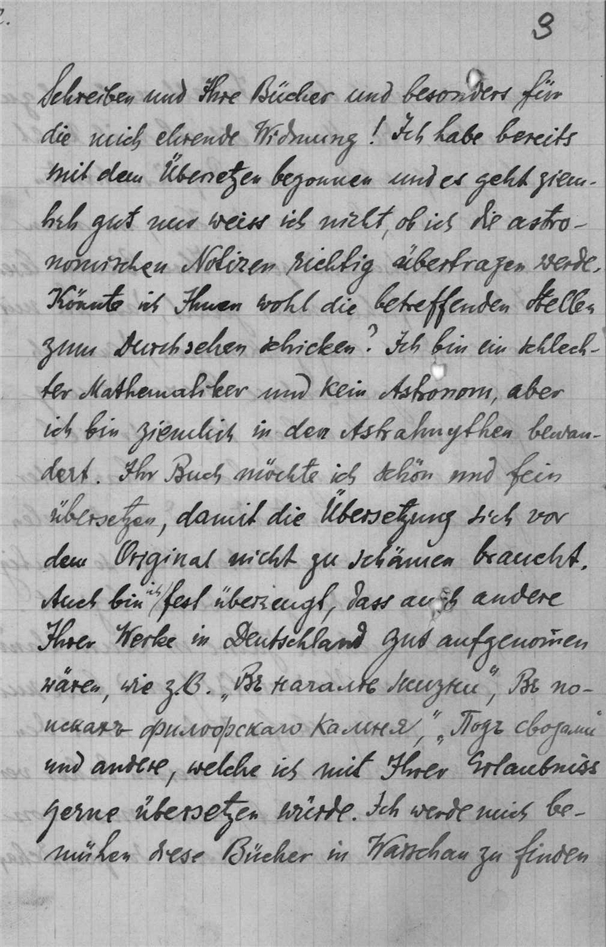 2.
9
Schreiben und Ihre Bücher und besonders für
die mich ehrende Widmung! Ich habe bereits
mit dem Übersetzen begonnen und es geht ziem-
lich gut nur weiss ich nicht, ob ich die astro-
nomischen Notizen richtig übertragen werde.
Könnte ich Ihnen wohl die betreffenden Stellen
zum Durchsehen schicken? Ich bin ein schlech-
ter Mathematiker und kein Astronom, aber
ich bin ziemlich in den Astralmythen bewan-
dert. Ihr Buch möchte ich schön und fein
übersetzen, damit die Übersetzung sich vor
dem Original nicht zu schämen braucht.
Auch bin ich fest überzeugt, dass auch andere
Ihrer Werke in Deutschland gut aufgenommen
wären, wie z.B. „Въ началѣ жизни", Въ по-
искахъ филофскаго камня", „Подъ сводами"
und andere, welche ich mit Ihrer Erlaubniss
gerne übersetzen würde. Ich werde mich be-
mühen diese Bücher in Warschau zu finden